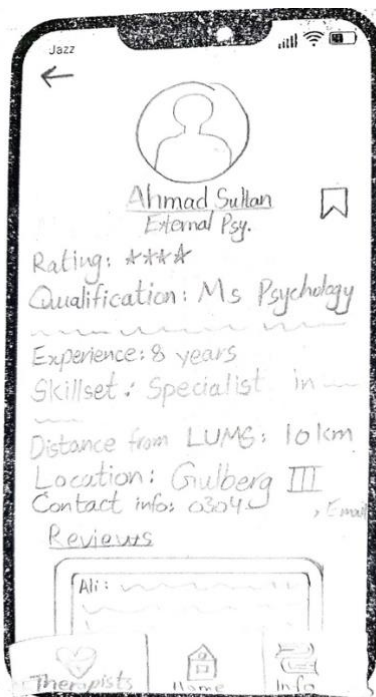 Jazz
Ahmad Sultan
External Psy.
Rating:
Qualification: Ms Psychology
Experience: 8 years
Skillset: Specialist in
Distance from LUMS: 10km
Location: Gulberg III
Contact info: 0304- , Email
Reviews
Ali:
Therapists Home Info